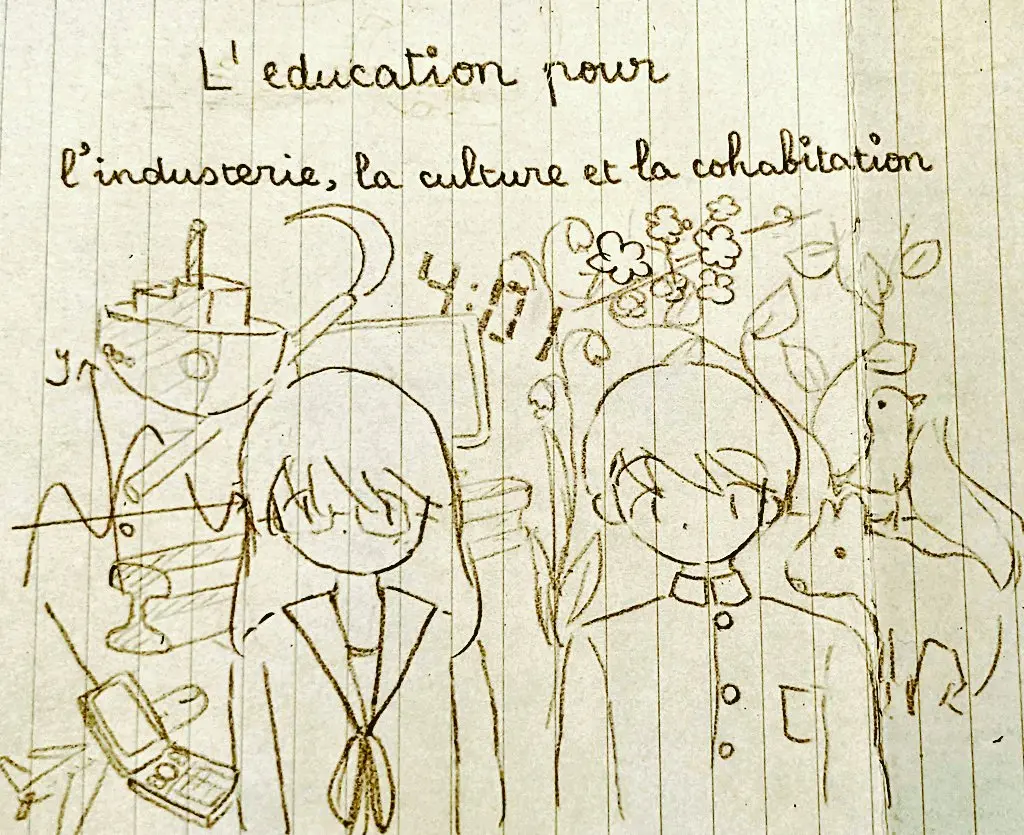 L' education pour
l'industerie, la culture et la cohabitation
y
o